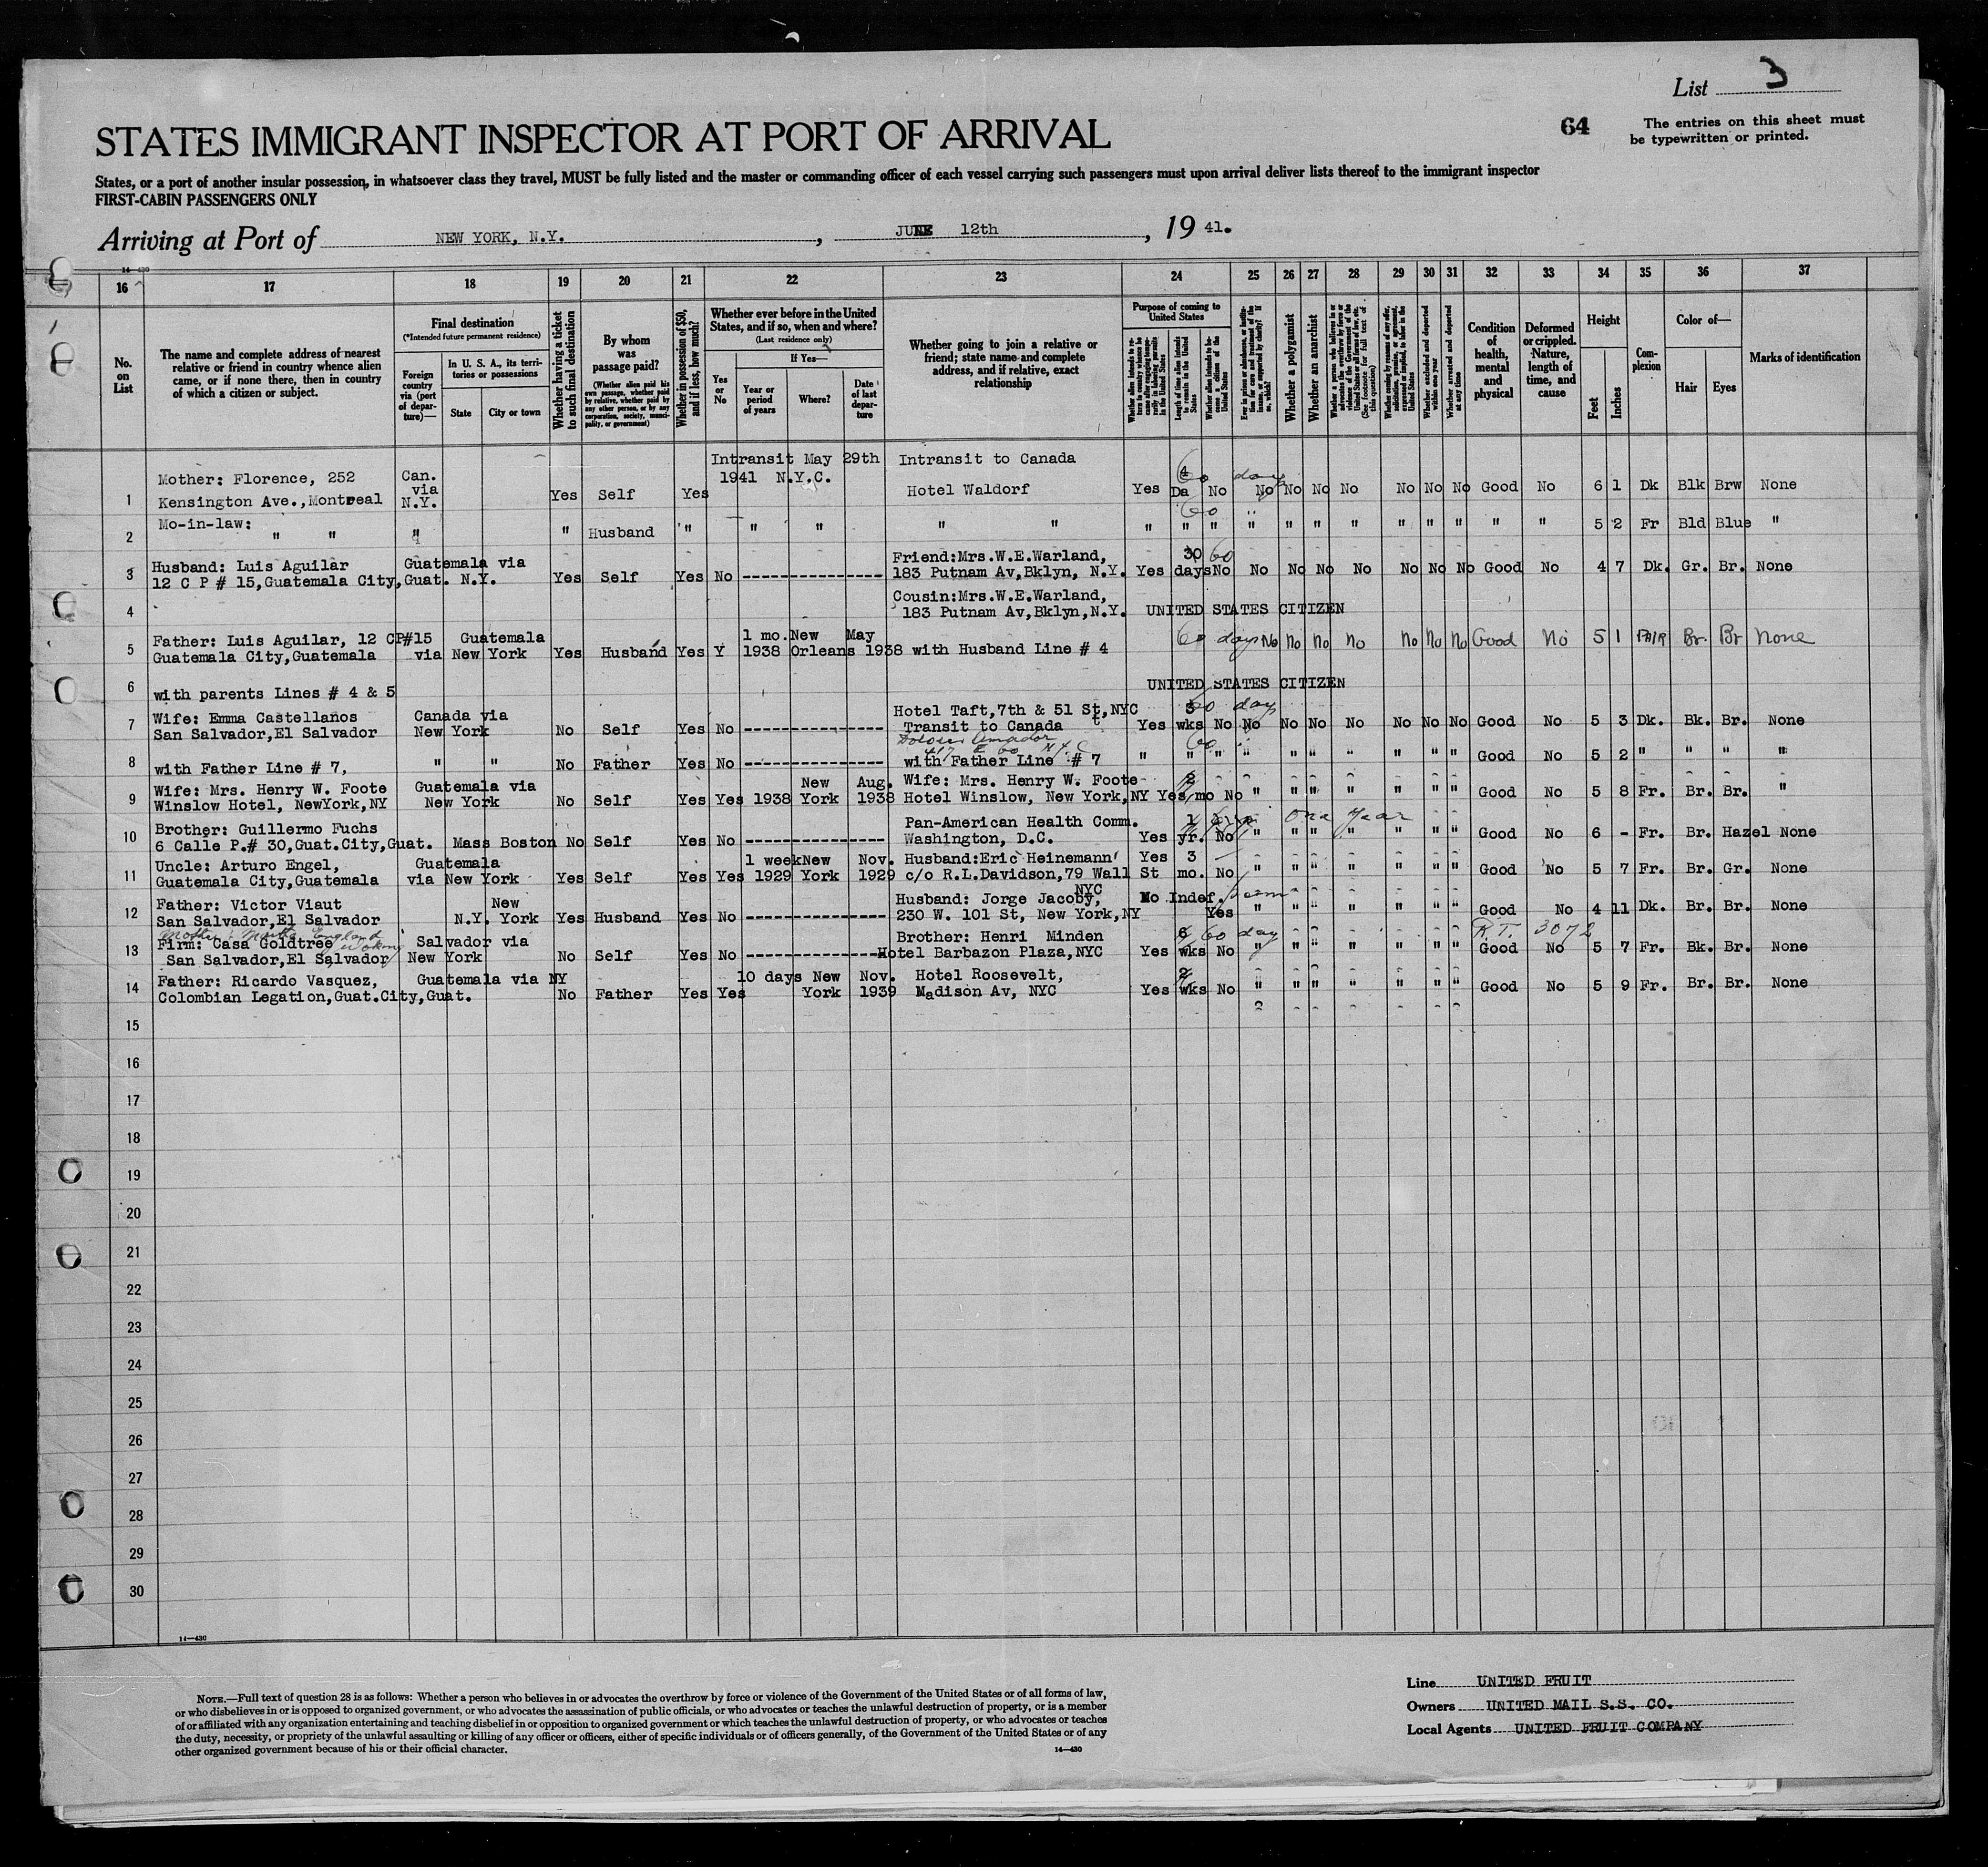 List 3
STATES IMMIGRANT INSPECTOR AT PORT OF ARRIVAL
64
The entries on this sheet must
be typewritten or printed.
States, or a port of another insular possession, in whatsoever class they travel, MUST be fully listed and the master or commanding officer of each vessel carrying such passengers must upon arrival deliver lists thereof to the immigrant inspector
FIRST-CABIN PASSENGERS ONLY
Arriving at Port of NEW YORK, N.Y. , JUNE 12th , 19 41.
14—430
16 17 18 19 20 21 22 23 24 25 26 27 28 29 30 31 32 33 34 35 36 37
No. on List
The name and complete address of nearest relative or friend in country whence alien came, or if none there, then in country of which a citizen or subject.
Final destination
(*Intended future permanent residence)
Foreign country via (port of departure)—
In U. S. A., its territories or possessions
State
City or town
Whether having a ticket to such final destination
By whom was passage paid?
(Whether alien paid his own passage, whether paid by relative, whether paid by any other person, or by any corporation, society, municipality, or government)
Whether in possession of $50, and if less, how much?
Whether ever before in the United States, and if so, when and where?
(Last residence only)
Yes or No
If Yes—
Year or period of years
Where?
Date of last departure
Whether going to join a relative or friend; state name and complete address, and if relative, exact relationship
Purpose of coming to United States
Length of time alien intends to remain in the United States
Whether a polygamist
Whether an anarchist
Whether excluded and deported within one year
Whether arrested and deported at any time
Condition of health, mental and physical
Deformed or crippled. Nature, length of time, and cause
Height
Feet
Inches
Complexion
Color of—
Hair
Eyes
Marks of identification
Intransit May 29th Intransit to Canada 4 60 days
Mother: Florence, 252 Can. 1941 N.Y.C.
1 Kensington Ave.,Montreal via N.Y. Yes Self Yes Hotel Waldorf Yes Da No No No No No No No No Good No 6 1 Dk Blk Brw None
Mo-in-law: 60
2 " " " " Husband " " " " " " " " " " " " " " " " " " 5 2 Fr Bld Blue "
Husband: Luis Aguilar Guatemala via Friend:Mrs.W.E.Warland, 30 60
3 12 C P # 15,Guatemala City,Guat. N.Y. Yes Self Yes No ---------------- 183 Putnam Av,Bklyn, N.Y. Yes days No No No No No No No No Good No 4 7 Dk. Gr. Br. None
Cousin:Mrs.W.E.Warland,
4 183 Putnam Av,Bklyn,N.Y. UNITED STATES CITIZEN
Father: Luis Aguilar, 12 CP#15 Guatemala 1 mo. New May 60 days No No No No No No No Good No 5 1 FAIR Br. Br None
5 Guatemala City,Guatemala via New York Yes Husband Yes Y 1938 Orleans 1938 with Husband Line # 4
6 with parents Lines # 4 & 5 UNITED STATES CITIZEN
Wife: Emma Castellanos Canada via Hotel Taft,7th & 51 St,NYC 3 60 day
7 San Salvador,El Salvador New York No Self Yes No ---------------- Transit to Canada Yes wks No No No No No No No No Good No 5 3 Dk. Bk. Br. None
Dolores Amador
417 E 60 NYC 60
8 with Father Line # 7, " " No Father Yes No ---------------- with Father Line # 7 " " " " " " " " " " Good No 5 2 " " " "
Wife: Mrs. Henry W. Foote Guatemala via New Aug. Wife: Mrs. Henry W. Foote 2
9 Winslow Hotel, NewYork,NY New York No Self Yes Yes 1938 York 1938 Hotel Winslow, New York,NY Yes mo No " " " " " " " Good No 5 8 Fr. Br. Br. "
Brother: Guillermo Fuchs Pan-American Health Comm. 1 One Year
10 6 Calle P.# 30,Guat.City,Guat. Mass Boston No Self Yes No ---------------- Washington, D.C. Yes yr. No " " " " " " " Good No 6 - Fr. Br. Hazel None
Uncle: Arturo Engel, Guatemala 1 week New Nov. Husband:Eric Heinemann Yes 3
11 Guatemala City,Guatemala via New York Yes Self Yes Yes 1929 York 1929 c/o R.L.Davidson,79 Wall St mo. No " " " " " " " Good No 5 7 Fr. Br. Gr. None
Father: Victor Viaut New Husband: Jorge Jacoby, NYC No Indef. Perm
12 San Salvador,El Salvador N.Y. York Yes Husband Yes No ---------------- 230 W. 101 St, New York,NY Yes " " " " " " " Good No 4 11 Dk. Br. Br. None
Firm: Casa Goldtree Salvador via Brother: Henri Minden 6 60 day R.T. 3072
13 San Salvador,El Salvador New York No Self Yes No ---------------- Hotel Barbazon Plaza,NYC Yes wks No " " " " " " " Good No 5 7 Fr. Bk. Br. None
Father: Ricardo Vasquez, Guatemala via NY 10 days New Nov. Hotel Roosevelt, 2
14 Colombian Legation,Guat.City,Guat. No Father Yes Yes York 1939 Madison Av, NYC Yes wks No " " " " " " " Good No 5 9 Fr. Br. Br. None
15
16
17
18
19
20
21
22
23
24
25
26
27
28
29
30
14—430
NOTE.—Full text of question 28 is as follows: Whether a person who believes in or advocates the overthrow by force or violence of the Government of the United States or of all forms of law,
or who disbelieves in or is opposed to organized government, or who advocates the assassination of public officials, or who advocates or teaches the unlawful destruction of property, or is a member
of or affiliated with any organization entertaining and teaching disbelief in or opposition to organized government or which teaches the unlawful destruction of property, or who advocates or teaches
the duty, necessity, or propriety of the unlawful assaulting or killing of any officer or officers, either of specific individuals or of officers generally, of the Government of the United States or of any
other organized government because of his or their official character.
14—430
Line UNITED FRUIT
Owners UNITED MAIL S.S. CO.
Local Agents UNITED FRUIT COMPANY